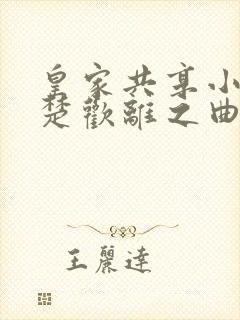 皇家共享小
楚歡離之曲
王麗達